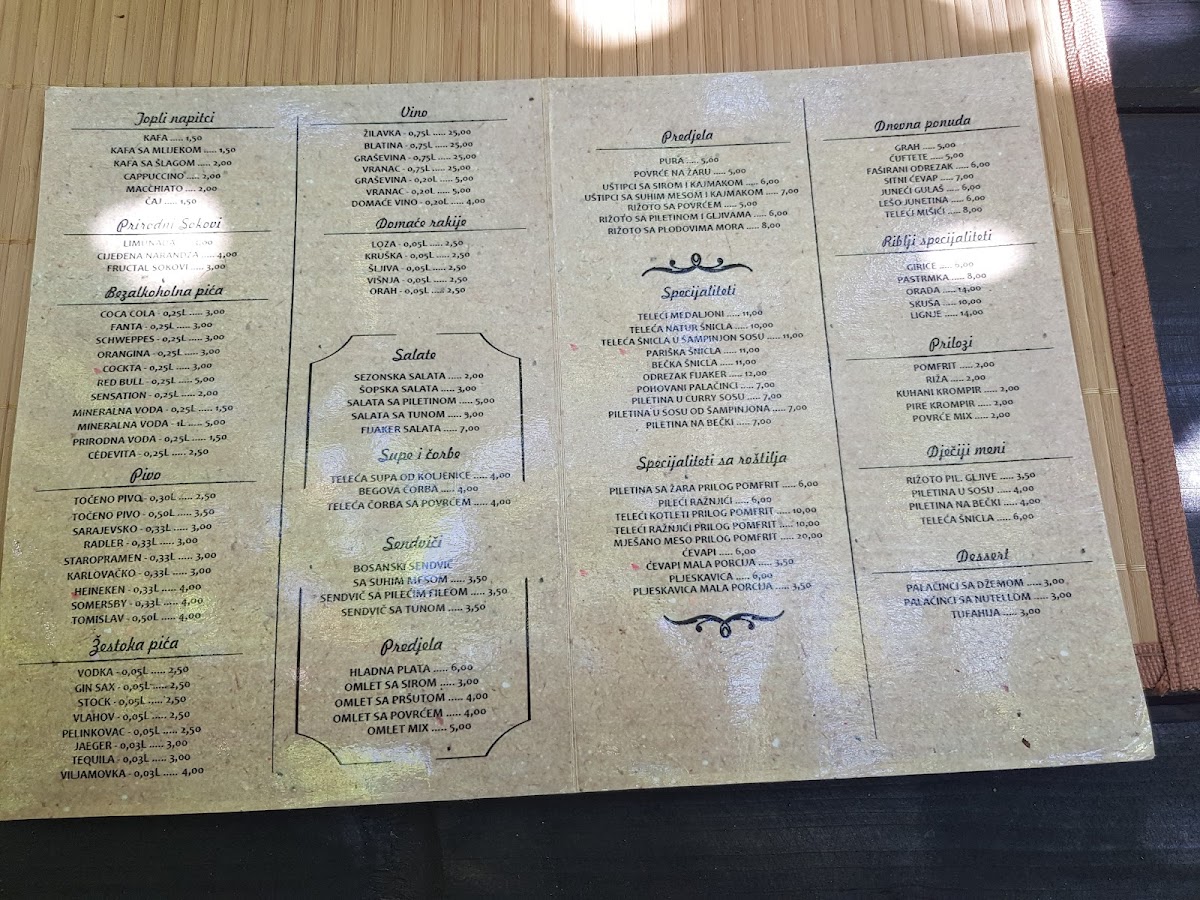 Topli napitci
KAFA ..... 1,50
KAFA SA MLIJEKOM ..... 1,50
KAFA SA ŠLAGOM ..... 2,00
CAPPUCCINO ..... 2,00
MACCHIATO ..... 2,00
ČAJ ..... 1,50
Prirodni Sokovi
LIMUNADA
CIJEĐENA NARANDŽA ..... 4,00
FRUCTAL SOKOVI ..... 3,00
Bezalkoholna pića
COCA COLA - 0,25L ..... 3,00
FANTA - 0,25L ..... 3,00
SCHWEPPES - 0,25L ..... 3,00
ORANGINA - 0,25L ..... 3,00
COCKTA - 0,25L ..... 3,00
RED BULL - 0,25L ..... 5,00
SENSATION - 0,25L ..... 2,00
MINERALNA VODA - 0,25L ..... 1,50
MINERALNA VODA - 1L ..... 5,00
PRIRODNA VODA - 0,25L ..... 1,50
CEDEVITA - 0,25L ..... 2,50
Pivo
TOČENO PIVO - 0,30L ..... 2,50
TOČENO PIVO - 0,50L ..... 3,50
SARAJEVSKO - 0,33L ..... 3,00
RADLER - 0,33L ..... 3,00
STAROPRAMEN - 0,33L ..... 3,00
KARLOVAČKO - 0,33L ..... 3,00
HEINEKEN - 0,33L ..... 4,00
SOMERSBY - 0,33L ..... 4,00
TOMISLAV - 0,50L ..... 4,00
Žestoka pića
VODKA - 0,05L ..... 2,50
GIN SAX - 0,05L ..... 2,50
STOCK - 0,05L ..... 2,50
VLAHOV - 0,05L ..... 2,50
PELINKOVAC - 0,05L ..... 2,50
JAEGER - 0,03L ..... 3,00
TEQUILA - 0,03L ..... 3,00
VILJAMOVKA - 0,03L ..... 4,00
Vino
ŽILAVKA - 0,75L ..... 25,00
BLATINA - 0,75L ..... 25,00
GRAŠEVINA - 0,75L ..... 25,00
VRANAC - 0,75L ..... 25,00
GRAŠEVINA - 0,20L ..... 5,00
VRANAC - 0,20L ..... 5,00
DOMAĆE VINO - 0,20L ..... 4,00
Domaće rakije
LOZA - 0,05L ..... 2,50
KRUŠKA - 0,05L ..... 2,50
ŠLJIVA - 0,05L ..... 2,50
VIŠNJA - 0,05L ..... 2,50
ORAH - 0,05L ..... 2,50
Salate
SEZONSKA SALATA ..... 2,00
ŠOPSKA SALATA ..... 3,00
SALATA SA PILETINOM ..... 5,00
SALATA SA TUNOM ..... 5,00
FIJAKER SALATA ..... 7,00
Supe i čorbe
TELEĆA SUPA OD KOLJENICE ..... 4,00
BEGOVA ČORBA ..... 4,00
TELEĆA ČORBA SA POVRĆEM ..... 4,00
Sendviči
BOSANSKI SENDVIČ
SA SUHIM MESOM ..... 3,50
SENDVIČ SA PILEĆIM FILEOM ..... 3,50
SENDVIČ SA TUNOM ..... 3,50
Predjela
HLADNA PLATA ..... 6,00
OMLET SA SIROM ..... 3,00
OMLET SA PRŠUTOM ..... 4,00
OMLET SA POVRĆEM ..... 4,00
OMLET MIX ..... 5,00
Predjela
PURA ..... 5,00
POVRĆE NA ŽARU ..... 5,00
UŠTIPCI SA SIROM I KAJMAKOM ..... 6,00
UŠTIPCI SA SUHIM MESOM I KAJMAKOM ..... 7,00
RIŽOTO SA POVRĆEM ..... 5,00
RIŽOTO SA PILETINOM I GLJIVAMA ..... 6,00
RIŽOTO SA PLODOVIMA MORA ..... 8,00
Specijaliteti
TELEĆI MEDALJONI ..... 11,00
TELEĆA NATUR ŠNICLA ..... 10,00
TELEĆA ŠNICLA U ŠAMPINJON SOSU ..... 11,00
PARIŠKA ŠNICLA ..... 11,00
BEČKA ŠNICLA ..... 11,00
ODREZAK FIJAKER ..... 12,00
POHOVANI PALAČINCI ..... 7,00
PILETINA U CURRY SOSU ..... 7,00
PILETINA U SOSU OD ŠAMPINJONA ..... 7,00
PILETINA NA BEČKI ..... 7,00
Specijaliteti sa roštilja
PILETINA SA ŽARA PRILOG POMFRIT ..... 6,00
PILEĆI RAŽNJIĆI ..... 6,00
TELEĆI KOTLETI PRILOG POMFRIT ..... 10,00
TELEĆI RAŽNJIĆI PRILOG POMFRIT ..... 10,00
MJEŠANO MESO PRILOG POMFRIT ..... 20,00
ĆEVAPI ..... 6,00
ĆEVAPI MALA PORCIJA ..... 3,50
PLJESKAVICA ..... 6,00
PLJESKAVICA MALA PORCIJA ..... 3,50
Dnevna ponuda
GRAH ..... 5,00
ĆUFTETE ..... 5,00
FAŠIRANI ODREZAK ..... 6,00
SITNI ĆEVAP ..... 7,00
JUNEĆI GULAŠ ..... 6,00
LEŠO JUNETINA ..... 6,00
TELEĆI MIŠIĆI ..... 8,00
Riblji specijaliteti
GIRICE ..... 6,00
PASTRMKA ..... 8,00
ORADA ..... 14,00
SKUŠA ..... 10,00
LIGNJE ..... 14,00
Prilozi
POMFRIT ..... 2,00
RIŽA ..... 2,00
KUHANI KROMPIR ..... 2,00
PIRE KROMPIR ..... 2,00
POVRĆE MIX ..... 2,00
Dječiji meni
RIŽOTO PIL. GLJIVE ..... 3,50
PILETINA U SOSU ..... 4,00
PILETINA NA BEČKI ..... 4,00
TELEĆA ŠNICLA ..... 6,00
Dessert
PALAČINCI SA DŽEMOM ..... 3,00
PALAČINCI SA NUTELLOM ..... 3,00
TUFAHIJA ..... 3,00